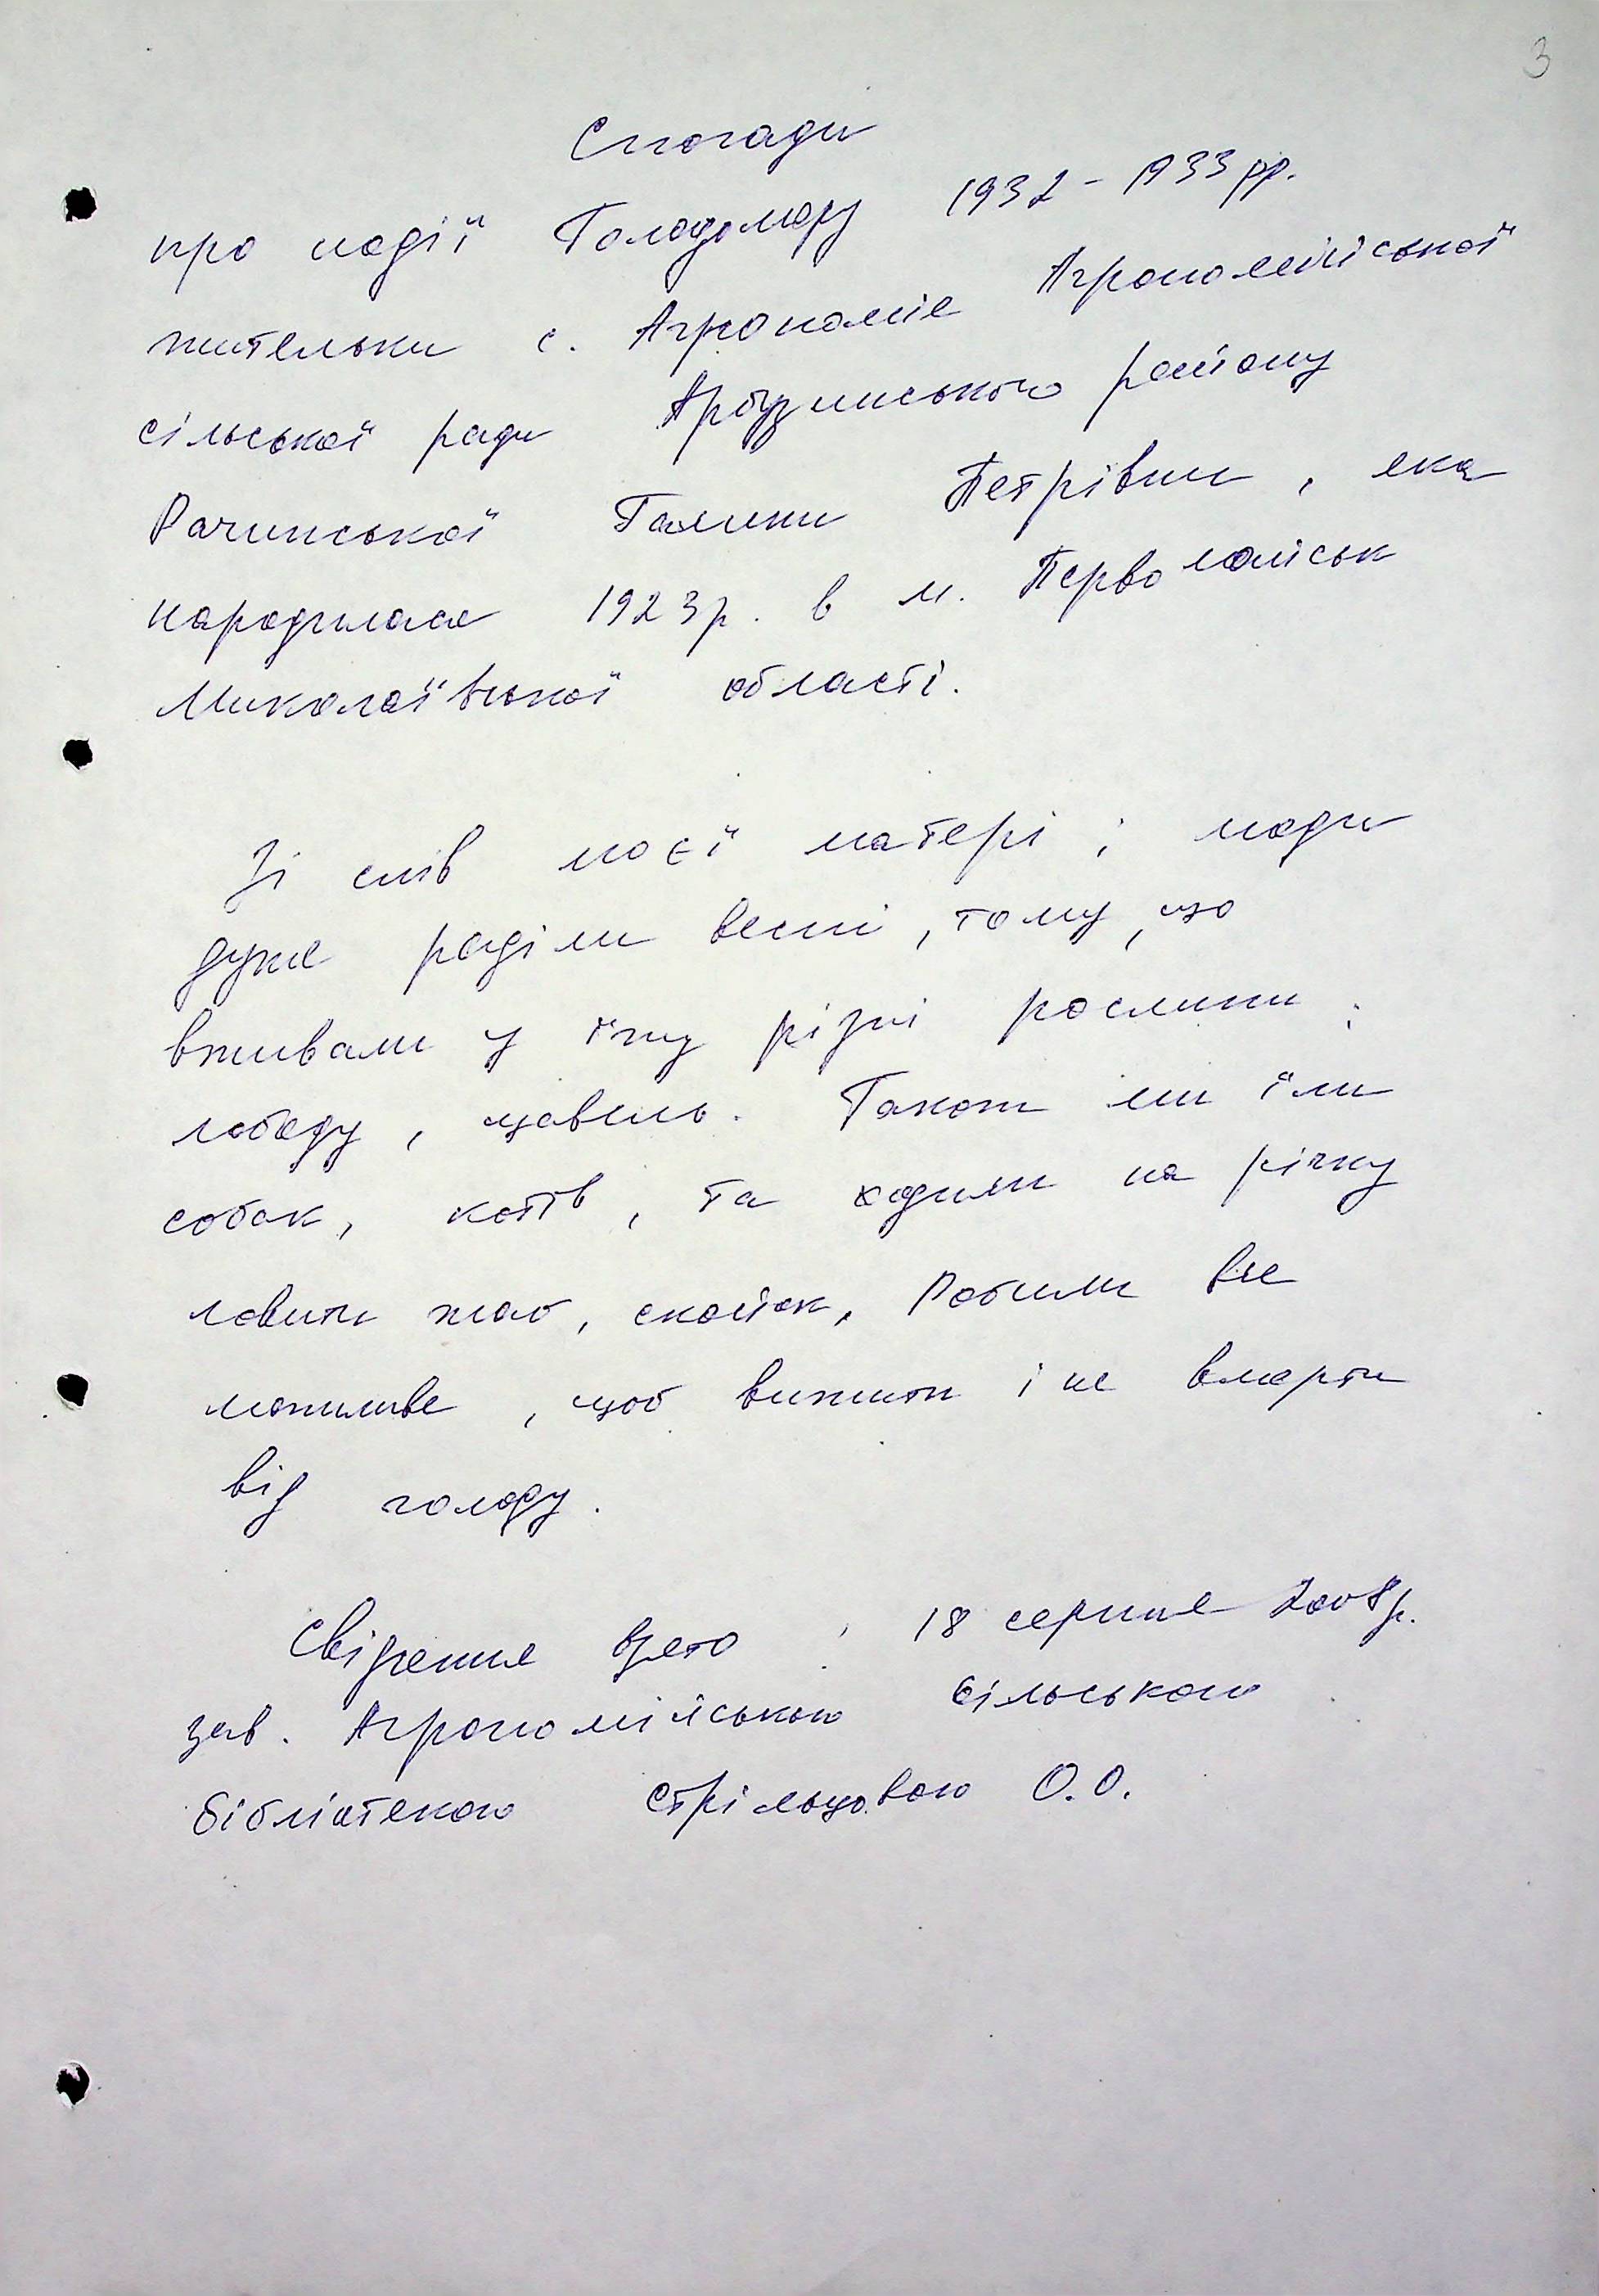 3
Спогади
про події Голодомору 1932-1933 рр.
жительки с. Агрономія Агрономійської
сільської ради Арбузинського району
Рачинської Галини Петрівни, яка
народилася 1923 р. в м. Первомайськ
Миколаївської області.
Зі слів моєї матері: люди
дуже раділи весні, тому, що
вживали у їжу різні рослини:
лободу, щавель. Також ми їли
собак, котів, та ходили на річку
ловити жаб, скойок. Робили все
можливе, щоб вижити і не вмерти
від голоду.
Свідчення взято: 18 серпня 2008 р.
зав. Агрономійською сільською
бібліотекою Стрільцовою О.О.